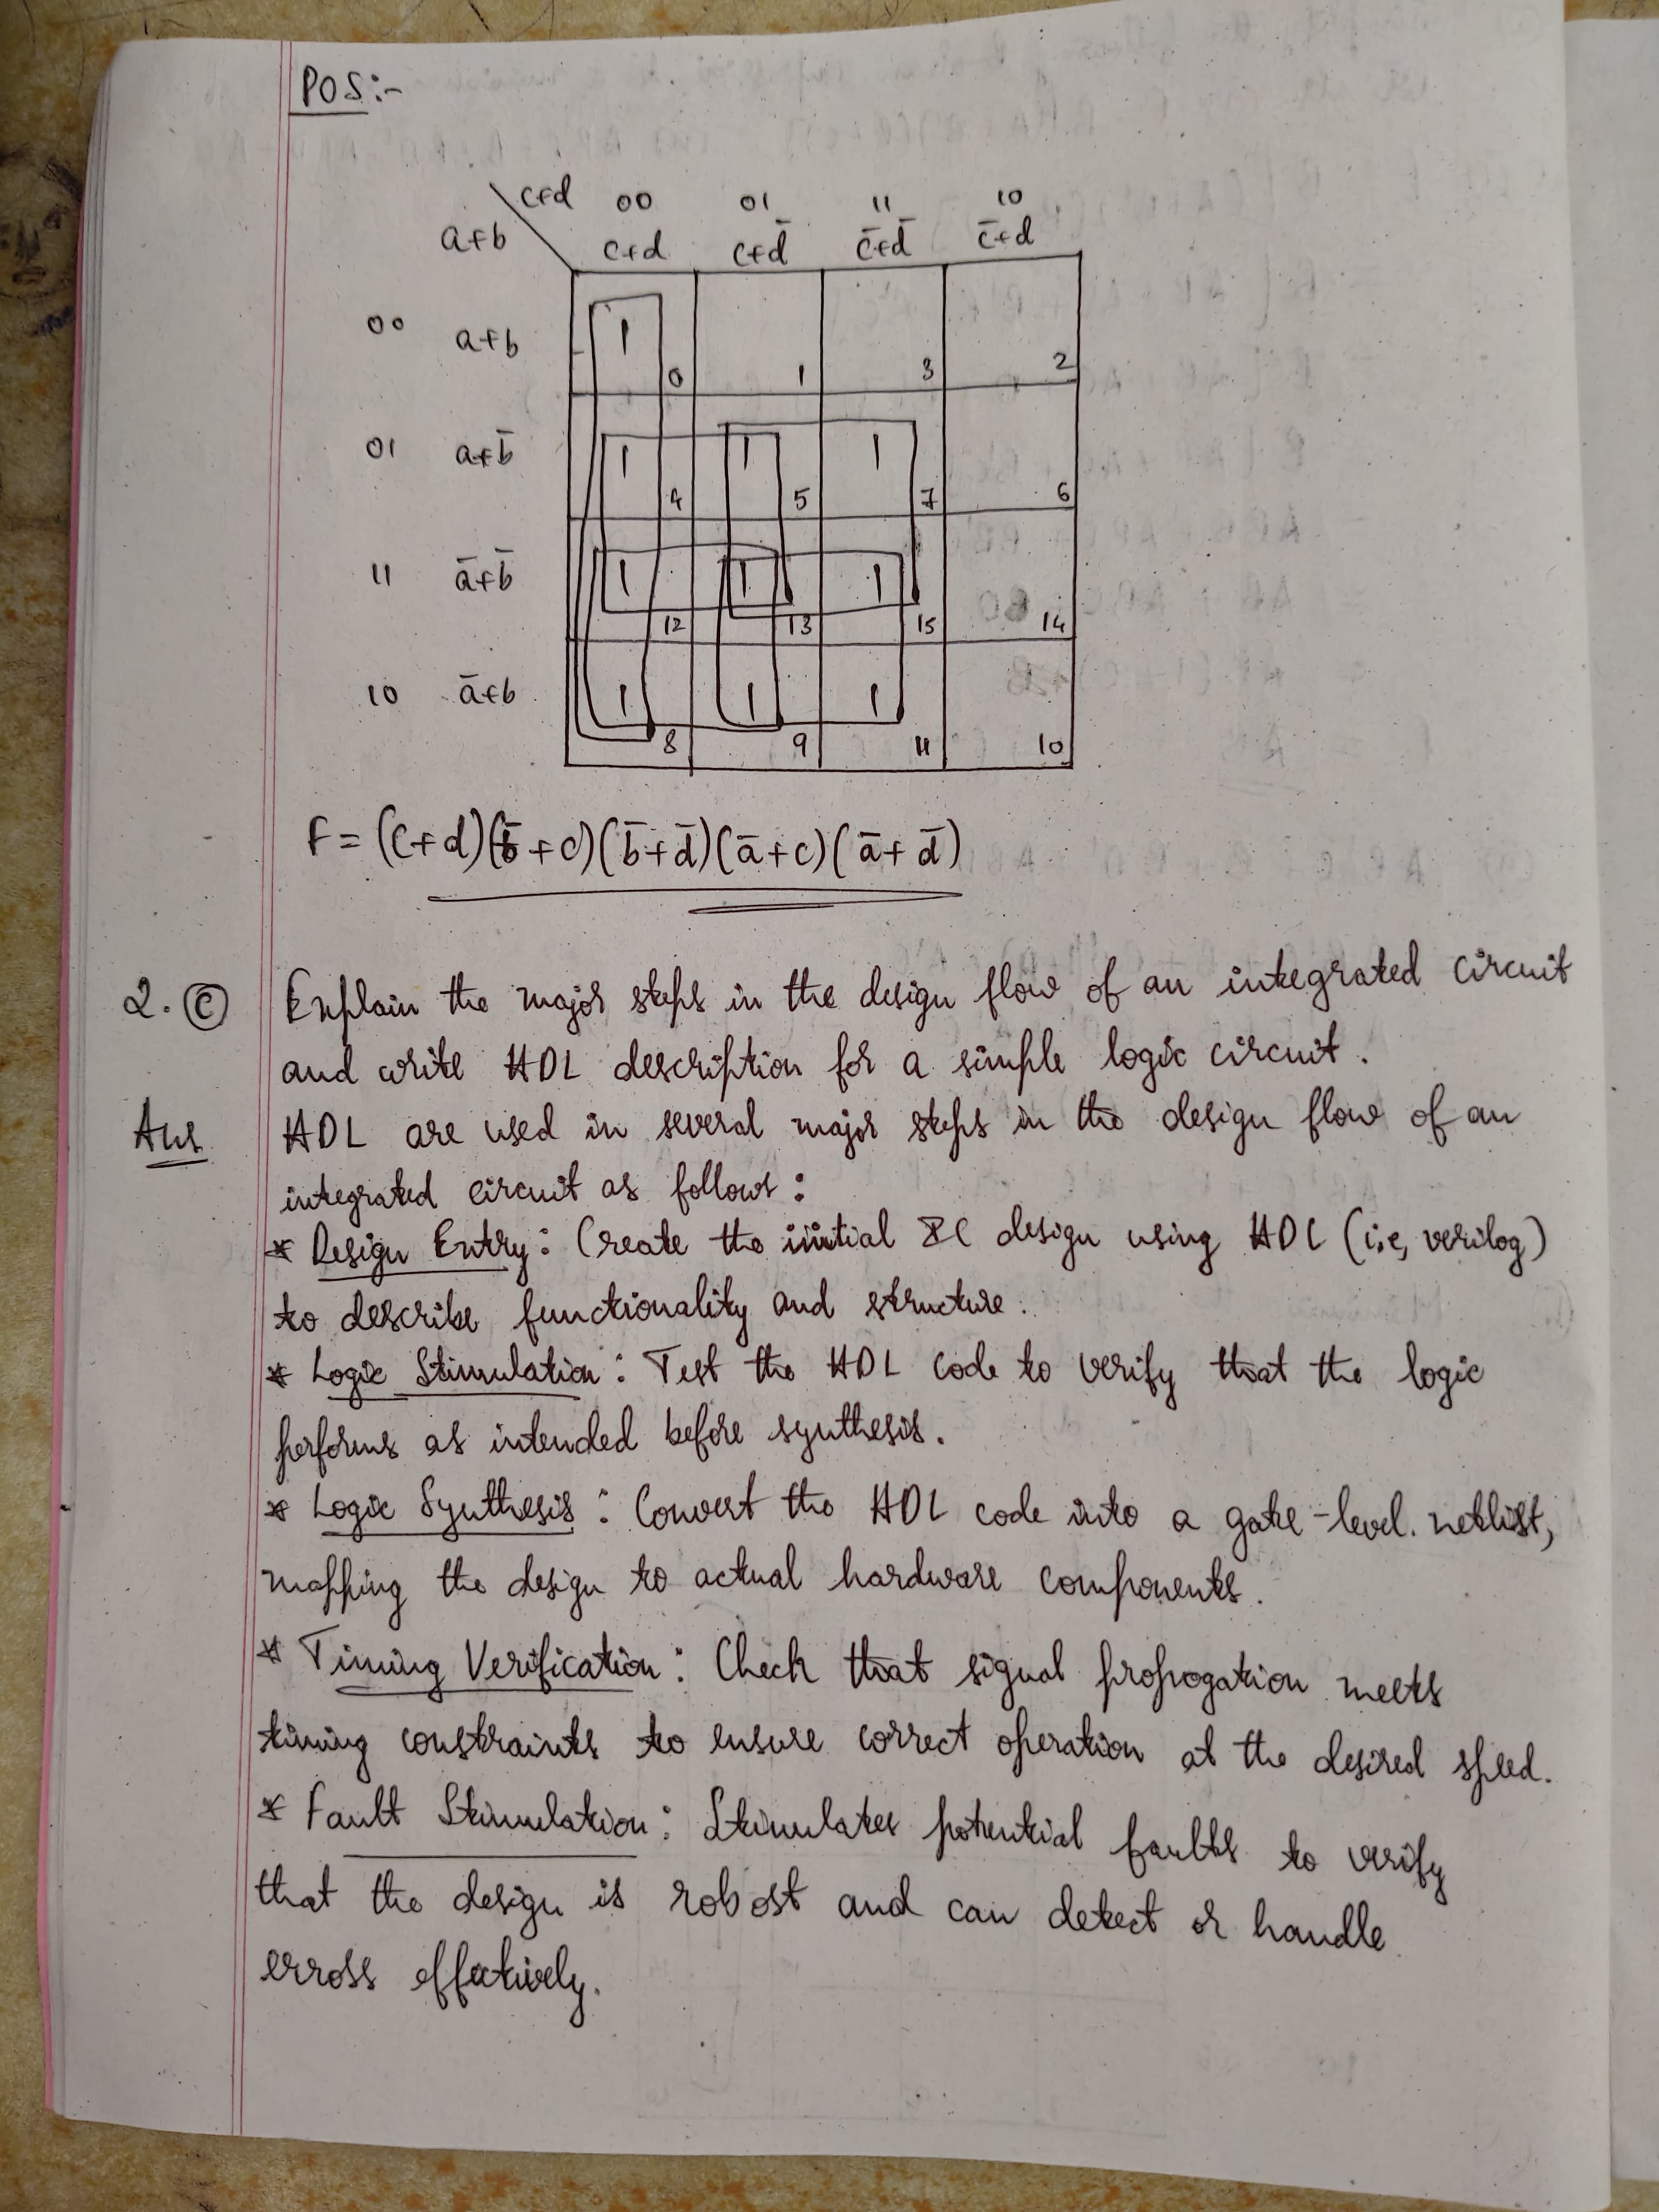 POS:-
c+d 00 01 11 10
a+b c+d c+d̄ c̄+d̄ c̄+d
00 a+b 1 0 1 3 2
01 a+b̄ 1 4 1 5 1 7 6
11 ā+b̄ 1 12 1 13 1 15 14
10 ā+b 1 8 1 9 1 11 10
F = (c+d)(b̄+c)(b̄+d̄)(ā+c)(ā+d̄)
2. (c) Explain the major steps in the design flow of an integrated circuit
and write HDL description for a simple logic circuit.
Ans HDL are used in several major steps in the design flow of an
integrated circuit as follows:
* Design Entry: Create the initial IC design using HDL (i.e, verilog)
to describe functionality and structure.
* Logic Stimulation: Test the HDL code to verify that the logic
performs as intended before synthesis.
* Logic Synthesis: Convert the HDL code into a gate-level. netlist,
mapping the design to actual hardware components.
* Timing Verification: Check that signal propogation meets
timing constraints to ensure correct operation at the desired speed.
* Fault Stimulation: Stimulates potential faults to verify
that the design is robost and can detect or handle
errors effectively.